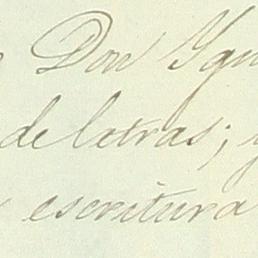 Don Ygn
de letras; y
escritura